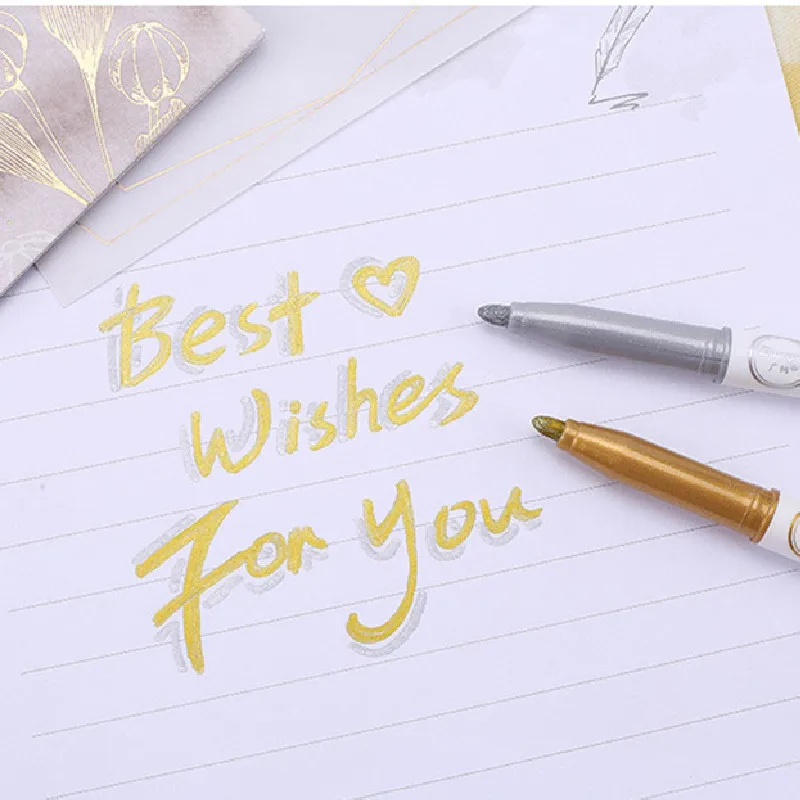 Best
Wishes
For You